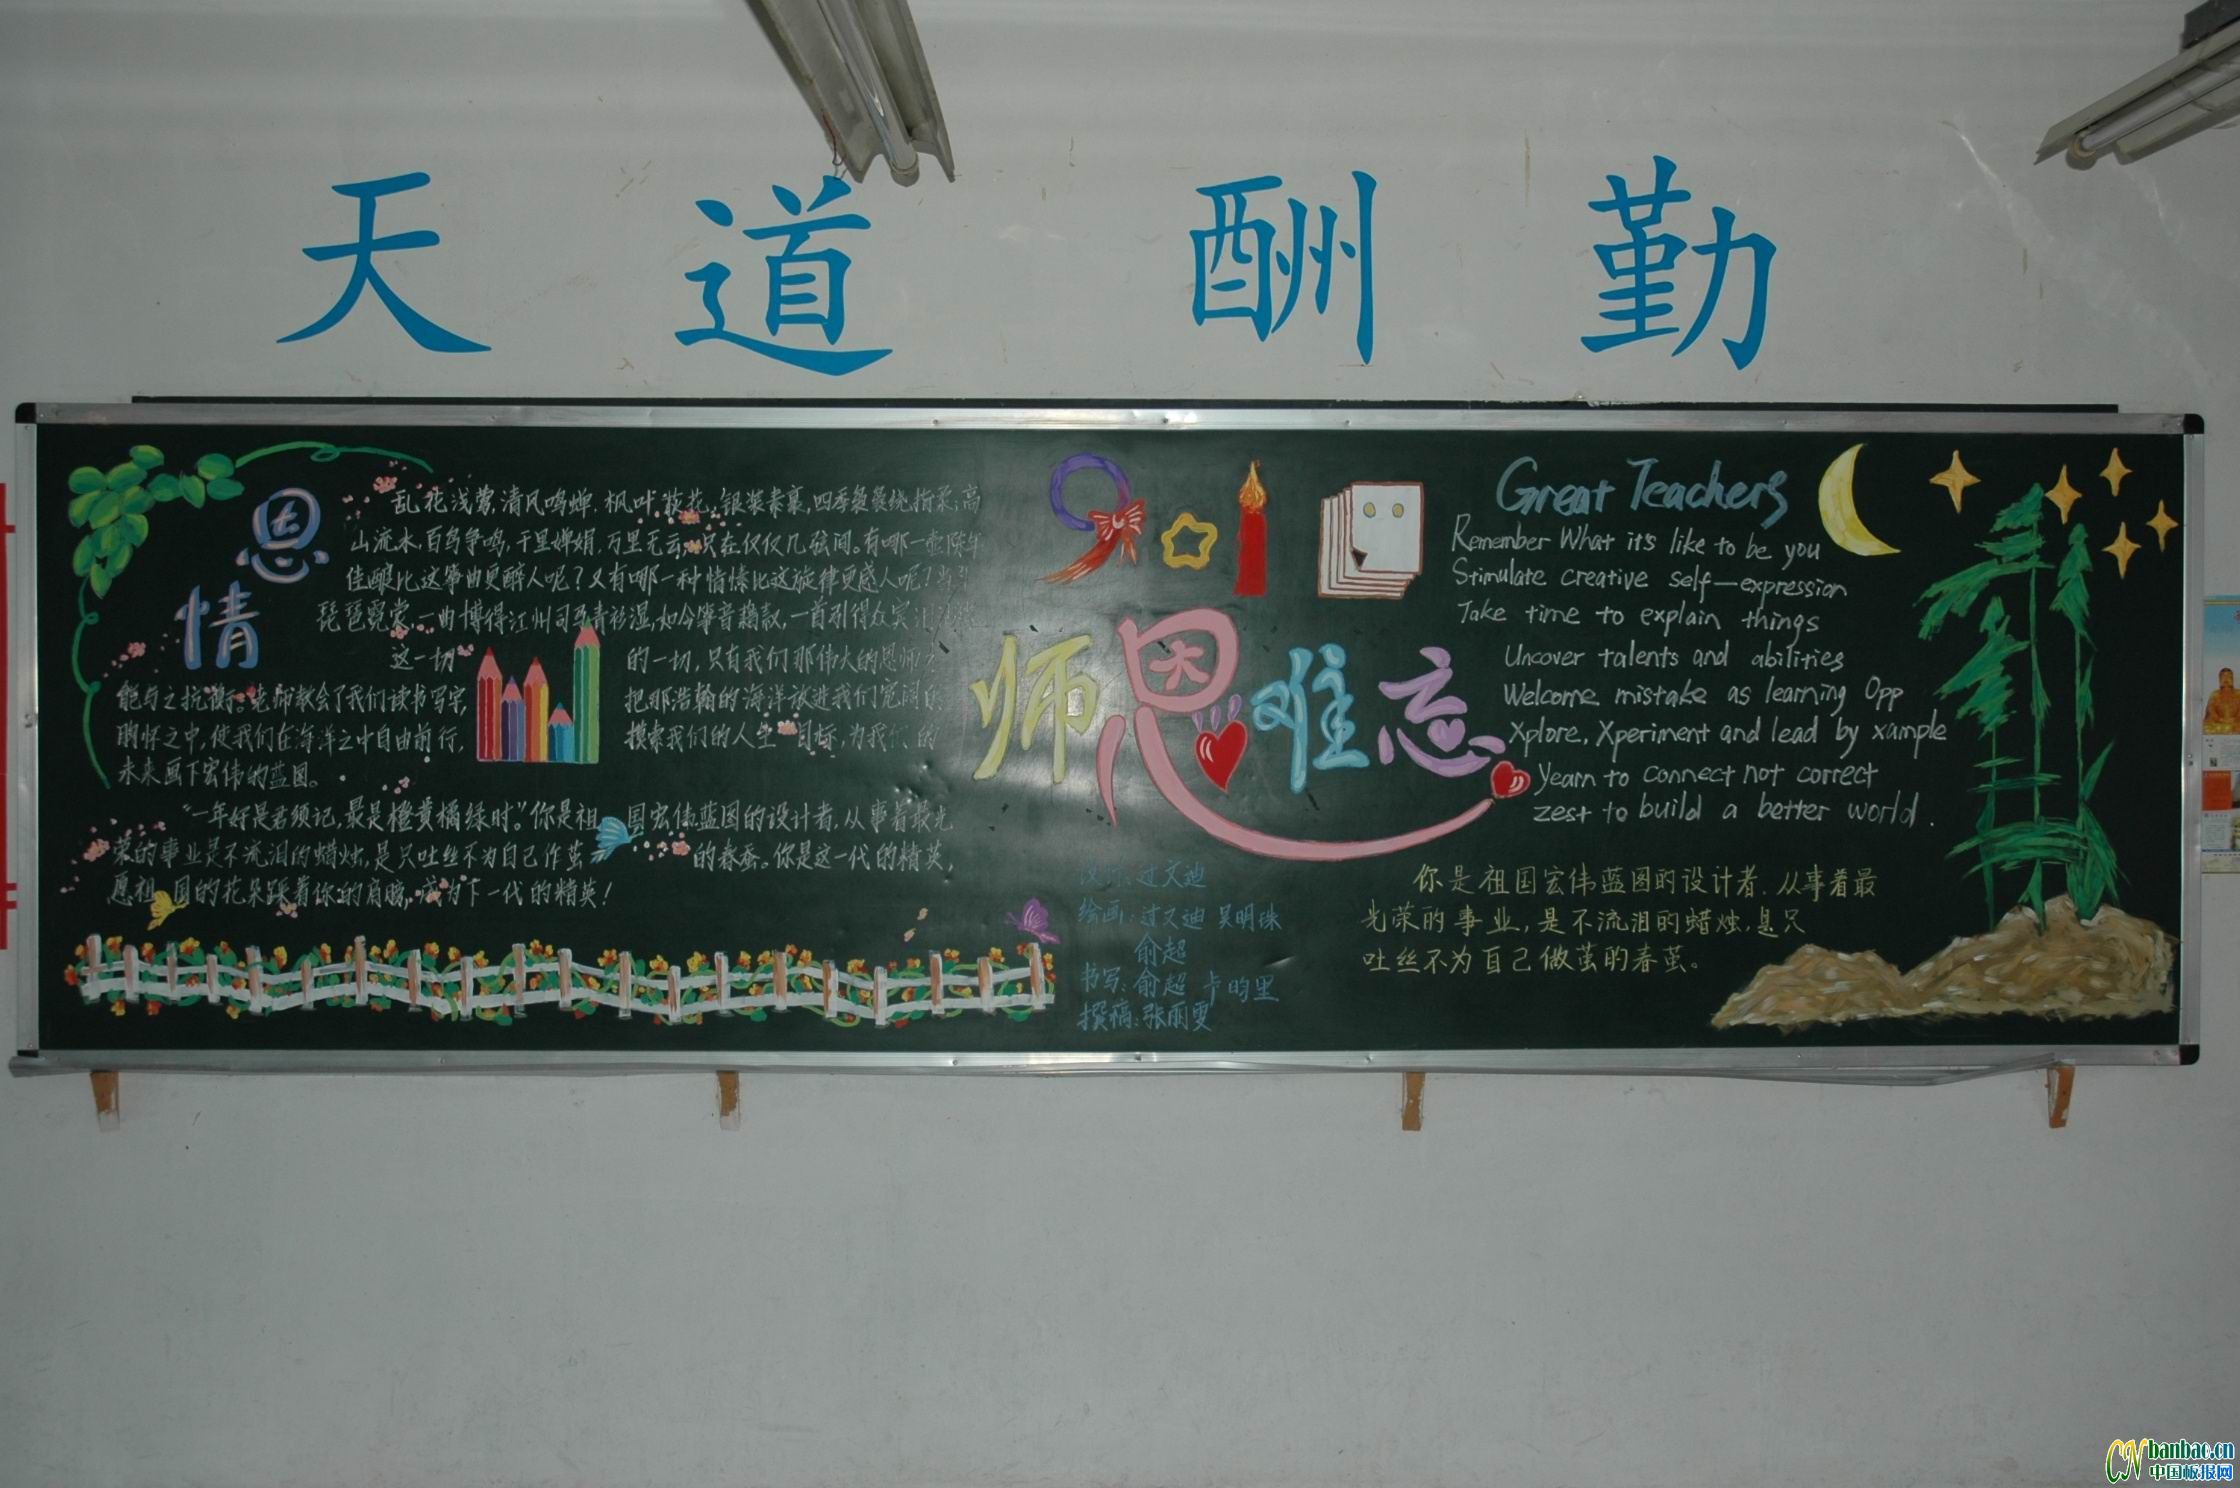 天道酬勤
恩情
乱花浅莺,清风鸣蝉.枫叶荻花,银装素裹,四季袅袅绕指柔;高
山流水,百鸟争鸣,千里婵娟,万里无云,只在仅仅几弦间。有哪一
佳酿比这筝曲更醉人呢?又有哪一种情愫比这旋律更感人呢?
琵琶霓裳,一曲博得江州司马青衫湿,如今筝音,一首引得众宾
这一切 的一切,只有我们那伟大的恩师才
能与之抗衡:老师教会了我们读书写字, 把那浩翰的海洋放进我们宽阔的
胸怀之中,使我们在海洋之中自由前行, 摸索我们的人生目标,为我们的
未来画下宏伟的蓝图。
“一年好是君须记,最是橙黄橘绿时。”你是祖国宏伟蓝图的设计者,从事着最光
荣的事业是不流泪的蜡烛,是只吐丝不为自己作茧的春蚕。你是这一代的精英,
愿祖国的花朵踩着你的肩膀,成为下一代的精英!
师恩难忘
过文迪
绘画:过文迪 吴明珠
俞超
书写:俞超 卡昀里
撰稿:张丽雯
Great Teachers
Remember What it's like to be you
Stimulate creative self—expression
Take time to explain things
Uncover talents and abilities
Welcome mistake as learning Opp
Xplore, Xperiment and lead by xample
Yearn to connect not correct
zest to build a better world.
你是祖国宏伟蓝图的设计者,从事着最
光荣的事业,是不流泪的蜡烛,是只
吐丝不为自己做茧的春茧。
CN banbao.cn
中国板报网